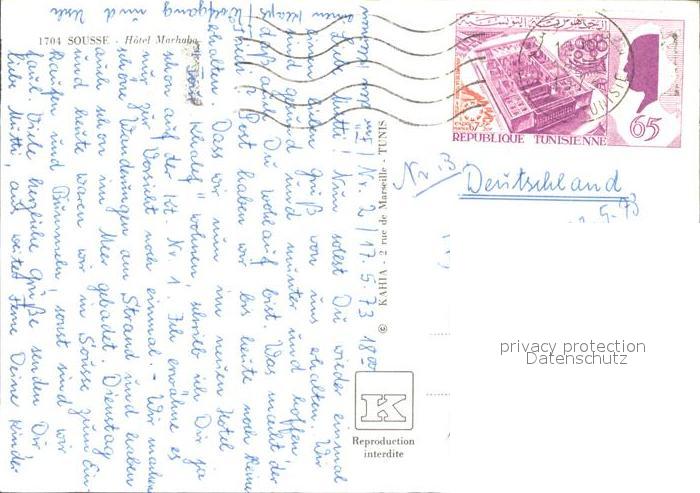 1704 SOUSSE - Hôtel Marhaba
REPUBLIQUE TUNISIENNE
65
TUNISIE
Nr. 2 / 17.5.73 18°°
Liebe Mutti! Nun sollst Du wieder einmal
einen lieben Gruß von uns erhalten. Wir
sind gesund und munter und hoffen,
daß auch Du wohlauf bist. Was macht der
Post haben wir bis heute noch keine
erhalten. Das wir nun im neuen Hotel
"Khalef" wohnen, schrieb ich Dir ja
schon auf der Kt. Nr. 1. Ich erwähne es
nur zur Vorsicht noch einmal. - Wir machen
schöne Wanderungen am Strand und haben
auch schon im Meer gebadet. Dienstag
und heute waren wir in Sousse zum Ein-
kaufen und Bummeln, sonst sind wir
faul. Viele herzliche Grüße senden Dir
liebe Mutti, aus weiter Ferne Deine Kinder
Wolfgang und
© KAHIA - 2 rue de Marseille - TUNIS
N2 B
Deutschland
5-73
privacy protection
Datenschutz
K
Reproduction
interdite